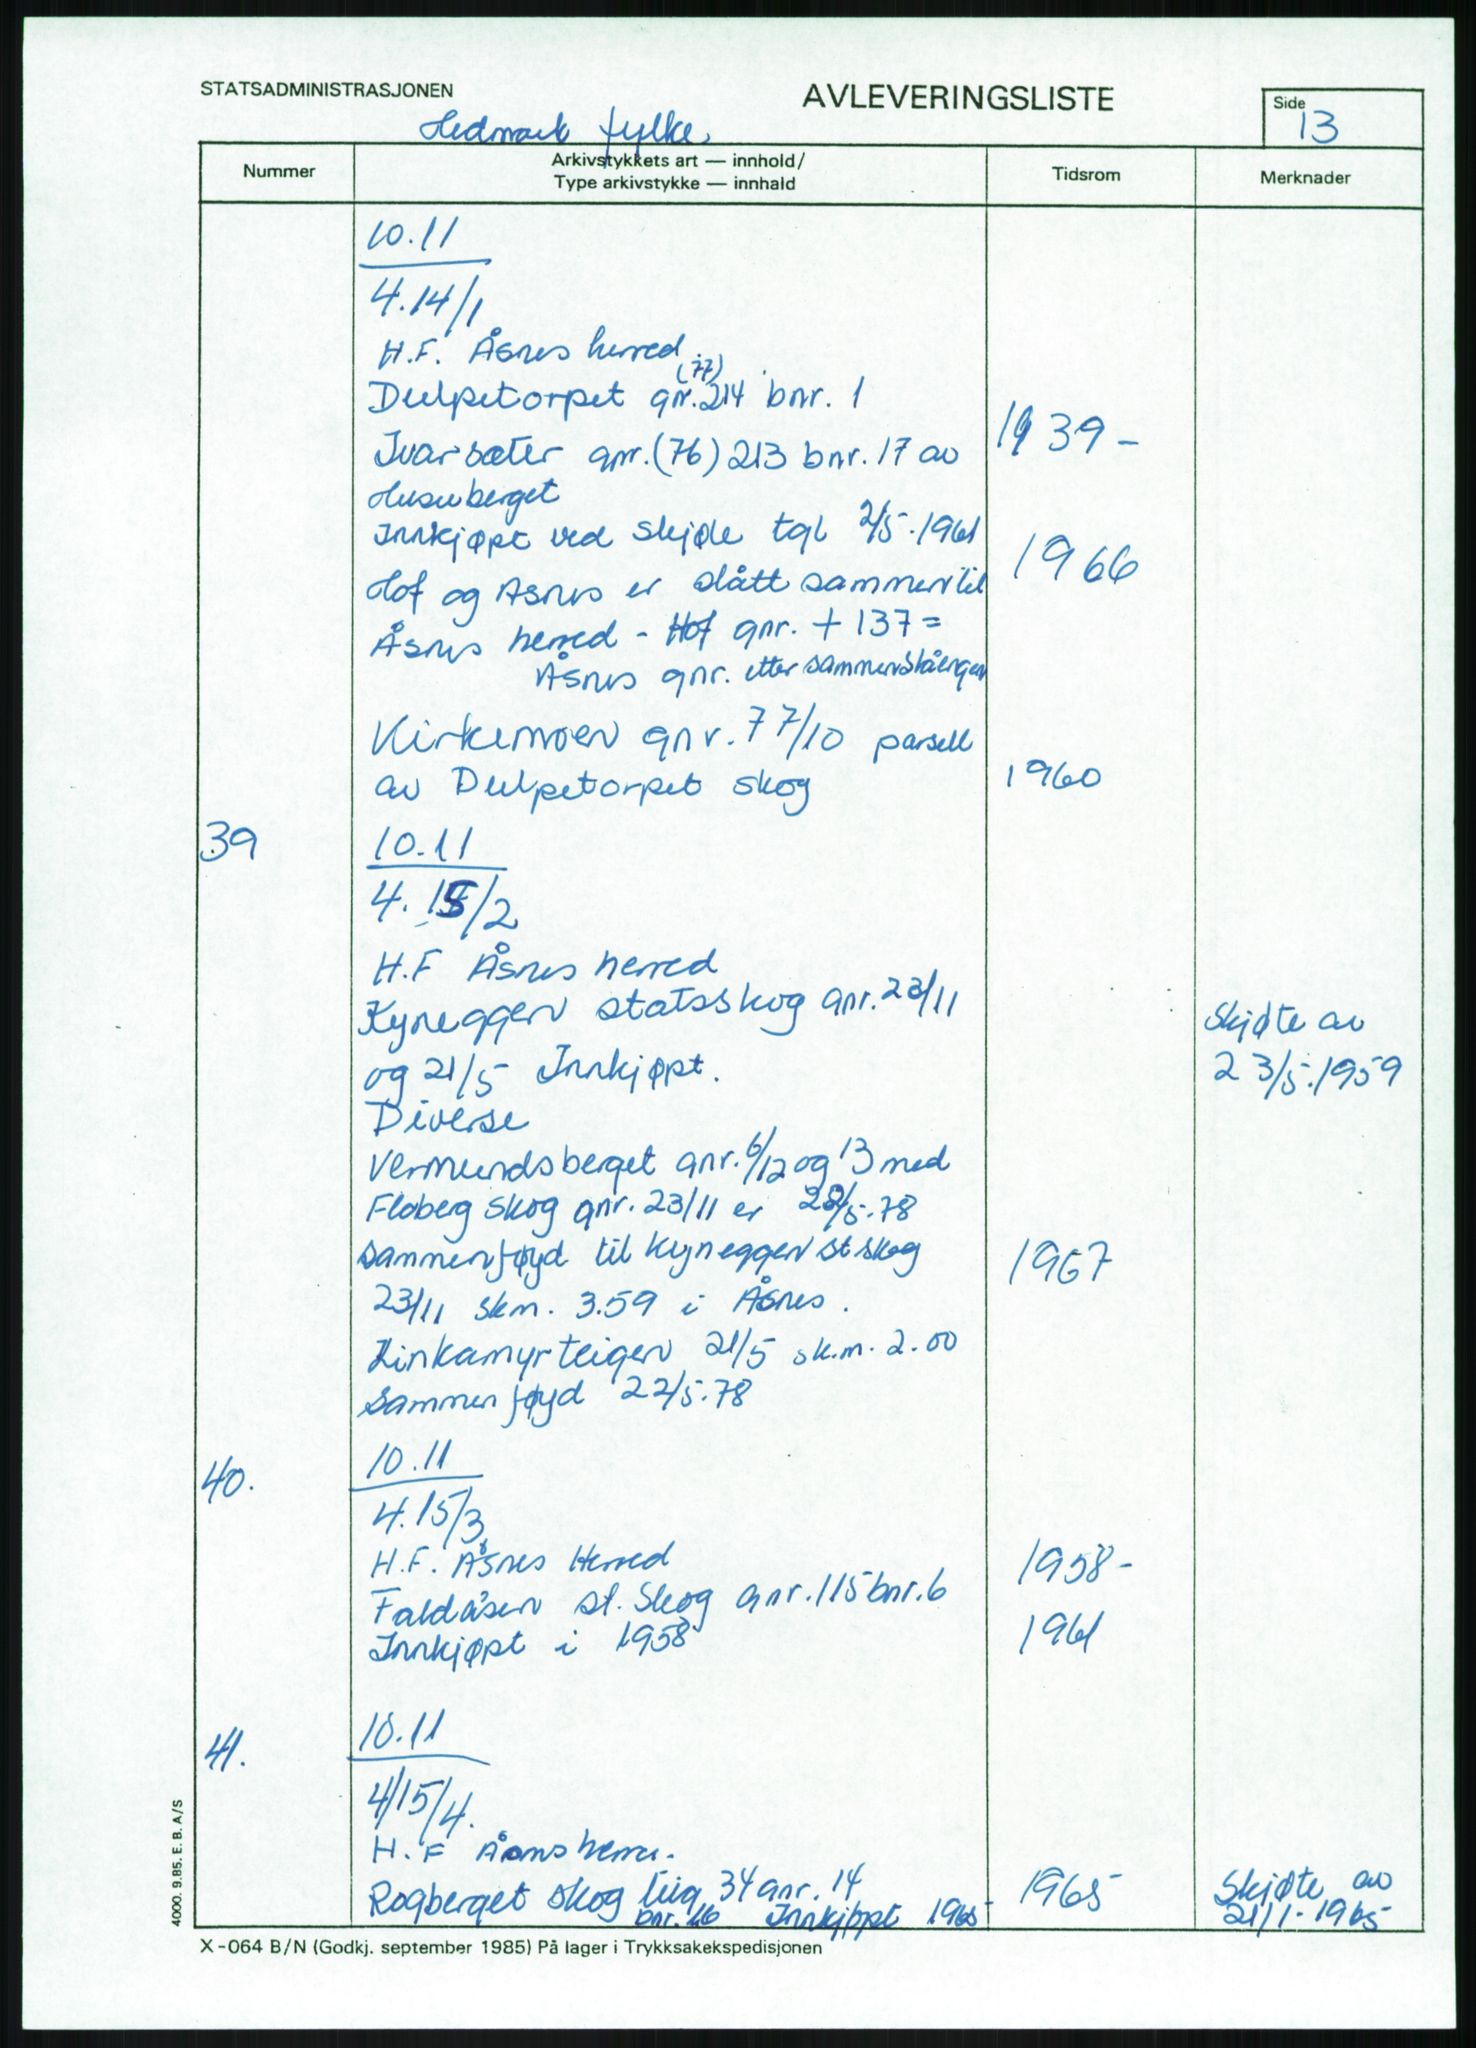 STATSADMINISTRASJONEN
AVLEVERINGSLISTE
Side
13
Hedmark fylke
Nummer
Arkivstykkets art — innhold/
Type arkivstykke — innhald
Tidsrom
Merknader
10.11
4.14/1
H.F. Åsnes herred
(77)
Dulpetorpet gnr. 214 bnr. 1
Ivarsæter gnr. (76) 213 bnr. 17 av
1939-
Husuberget
Innkjøpt ved skjøte tgl 2/5-1961
Hof og Åsnes er slått sammen til
1966
Åsnes herred - Hof gnr. + 137 =
Åsnes gnr. etter sammenslåingen
Kirkemoen gnr. 77/10 parsell
av Dulpetorpet skog
1960
39
10.11
4.15/2
H.F Åsnes herred
Kyneggen statsskog gnr. 23/11
Skjøte av
og 21/5 Innkjøpt.
23/5.1959
Diverse
Vermundsberget gnr. 6/12 og 13 med
Floberg skog gnr. 23/11 er 22/5-78
sammenføyd til Kyneggen st skog
1967
23/11 skm. 3.59 i Åsnes.
Kinkamyrteigen 21/5 sk.m. 2.00
sammenføyd 22/5.78
40.
10.11
4.15/3
H.F. Åsnes Herred
1958-
Faldåsen st. Skog gnr. 115 bnr. 6
Innkjøpt i 1958
1961
41.
10.11
4/15/4.
H.F Åsnes herred.
Rogberget skog 34 gnr. 14
1965
Skjøte av
bnr. 46 Innkjøpt 1965
21/1-1965
4000. 9.85. E. B. A/S
X-064 B/N (Godkj. september 1985) På lager i Trykksakekspedisjonen